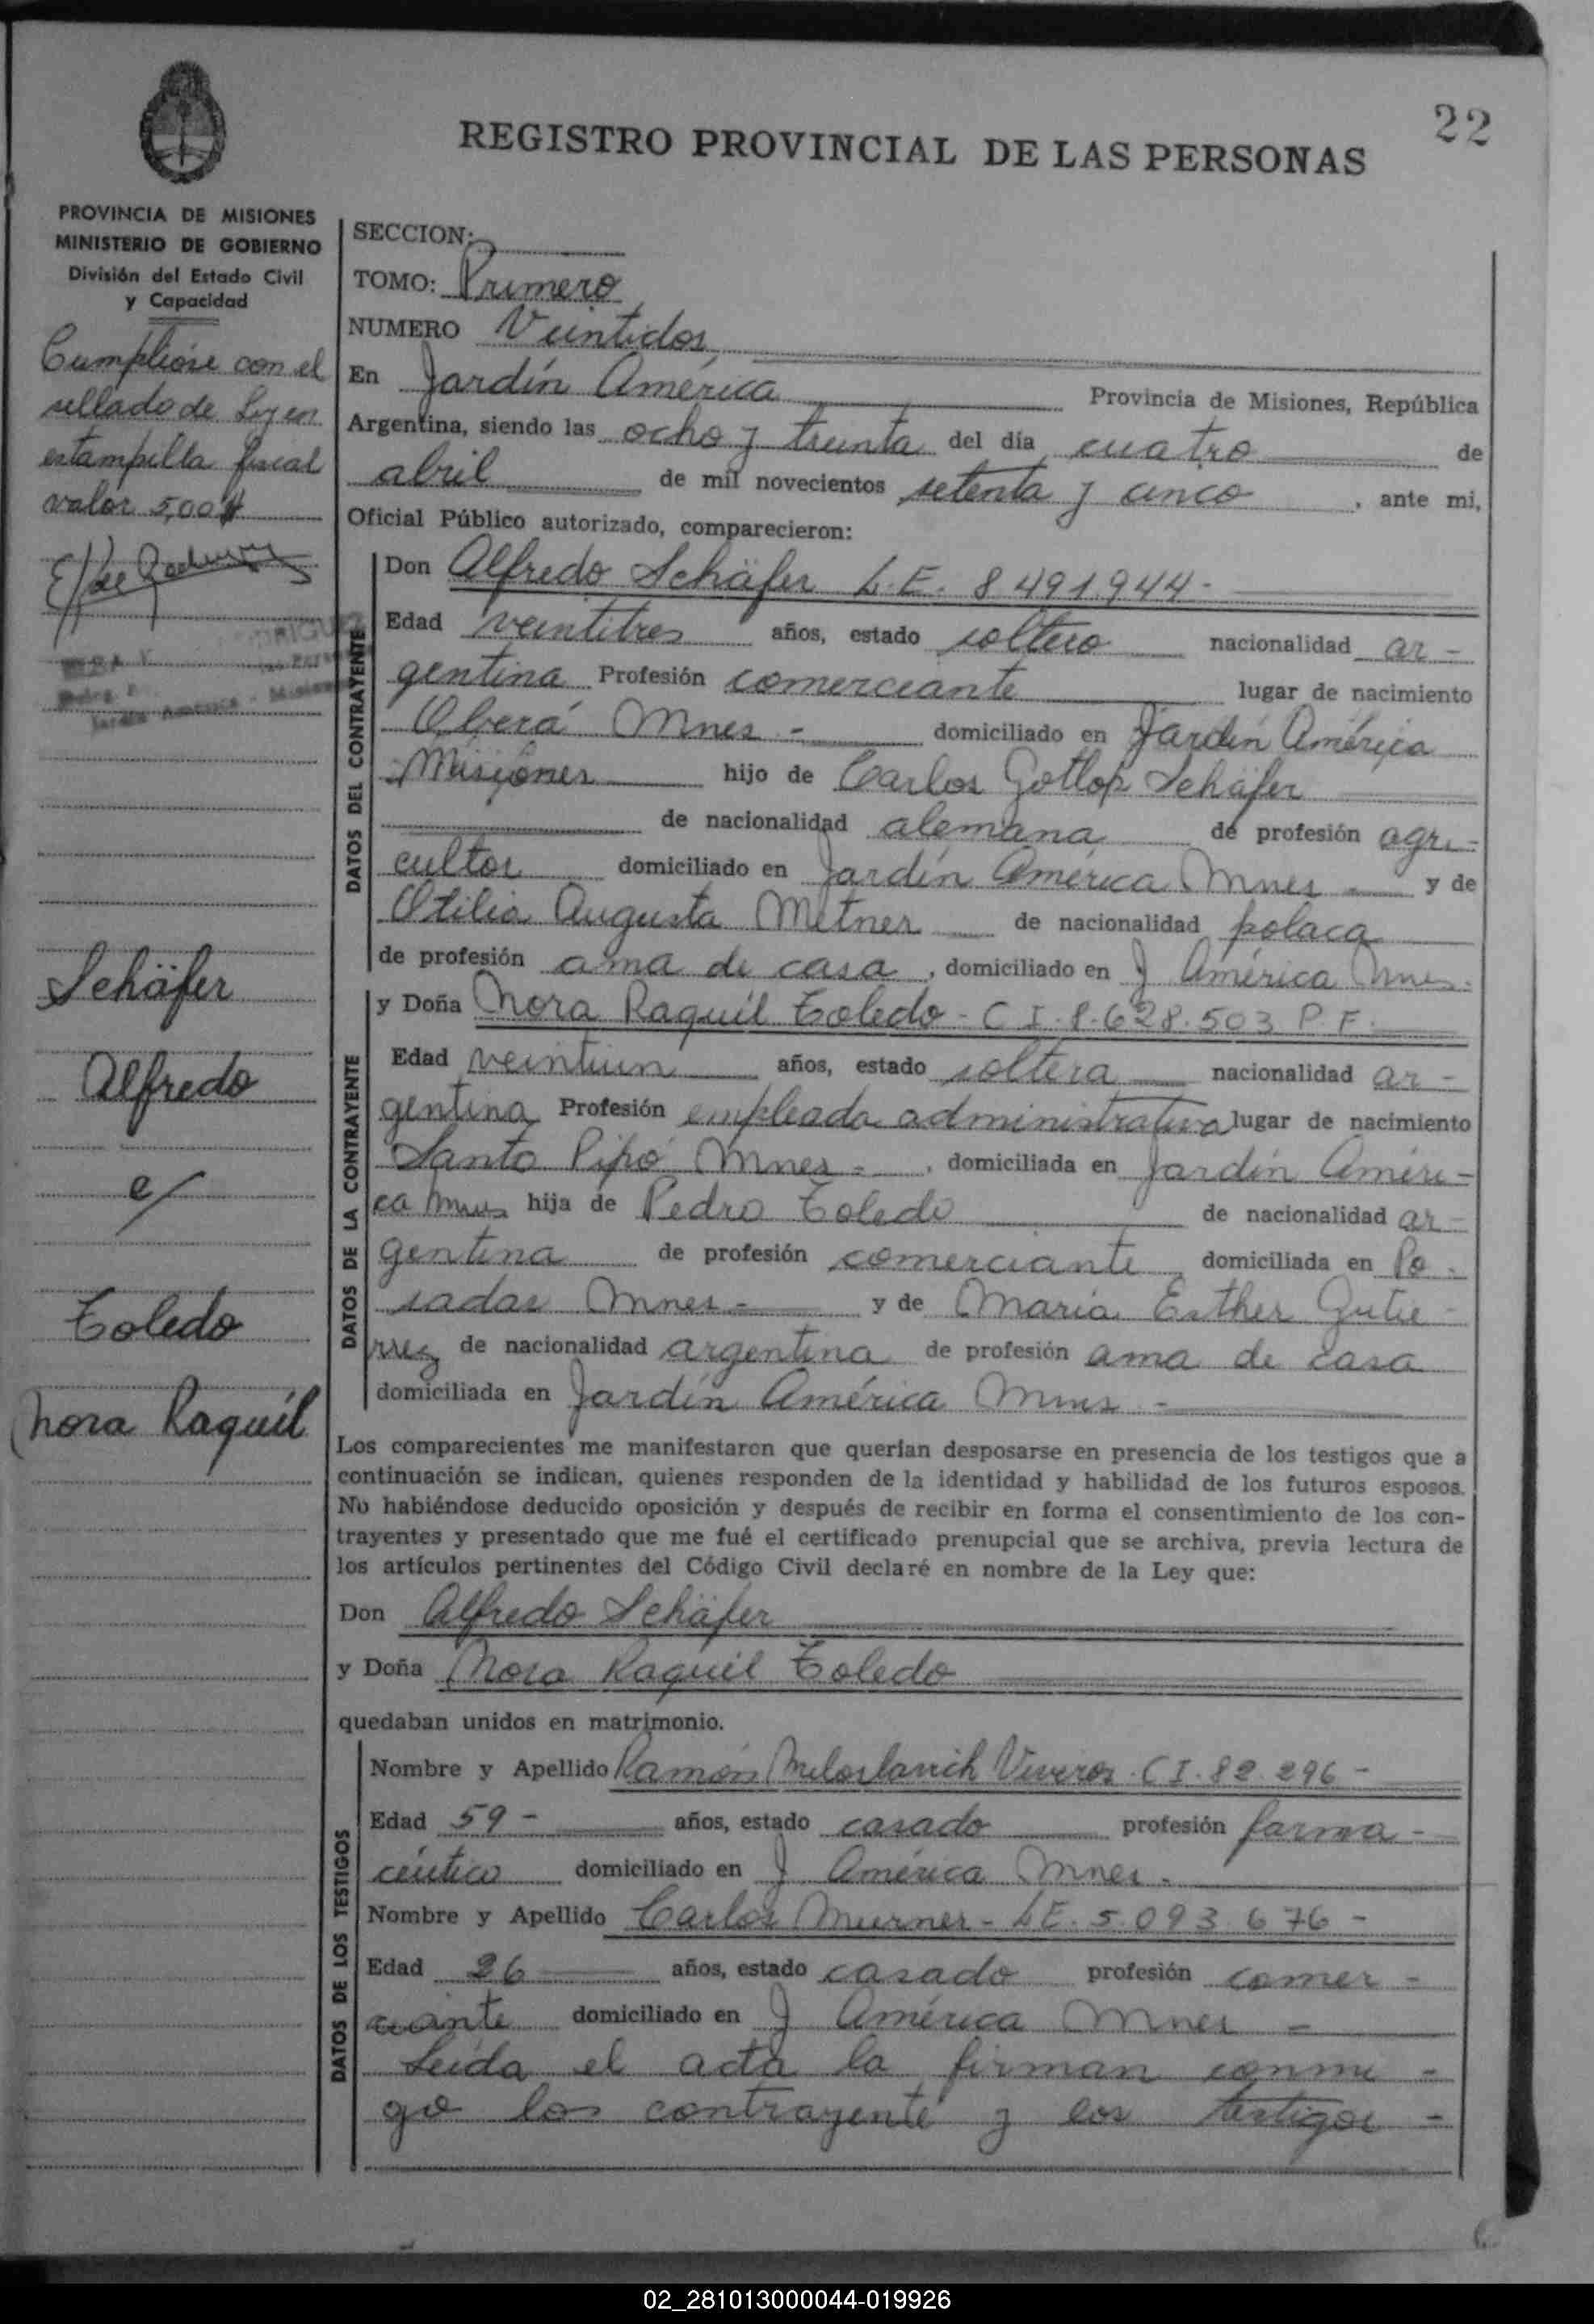 22
REGISTRO PROVINCIAL DE LAS PERSONAS
PROVINCIA DE MISIONES
MINISTERIO DE GOBIERNO
División del Estado Civil
y Capacidad
Cumplióse con el
sellado de Ley en
estampilla fiscal
valor 5,00 $
Schäfer
Alfredo
c/
Toledo
Nora Raquél
SECCION:
TOMO: Primero
NUMERO Veintidos
En Jardín América Provincia de Misiones, República
Argentina, siendo las ocho y treinta del día cuatro de
abril de mil novecientos setenta y cinco, ante mi,
Oficial Público autorizado, comparecieron:
DATOS DEL CONTRAYENTE
Don Alfredo Schäfer L.E. 8 491.944-
Edad veintitres años, estado soltero nacionalidad ar-
gentina Profesión comerciante lugar de nacimiento
Oberá Mnes - domiciliado en Jardín América
Misiones hijo de Carlos Gotlop Schäfer
de nacionalidad alemana de profesión agri-
cultor domiciliado en Jardín América Mnes - y de
Otilia Augusta Metner de nacionalidad polaca
de profesión ama de casa, domiciliado en J América Mnes.
DATOS DE LA CONTRAYENTE
y Doña Nora Raquél Toledo - C I. 8.628.503 P.F.
Edad veintiun años, estado soltera nacionalidad ar-
gentina Profesión empleada administrativa lugar de nacimiento
Santo Pipó Mnes -, domiciliada en Jardín Améri-
ca Mnes hija de Pedro Toledo de nacionalidad ar-
gentina de profesión comerciante domiciliada en Po-
sadas Mnes - y de María Esther Gutie-
rrez de nacionalidad argentina de profesión ama de casa
domiciliada en Jardín América Mnes -
Los comparecientes me manifestaron que querían desposarse en presencia de los testigos que a
continuación se indican, quienes responden de la identidad y habilidad de los futuros esposos.
No habiéndose deducido oposición y después de recibir en forma el consentimiento de los con-
trayentes y presentado que me fué el certificado prenupcial que se archiva, previa lectura de
los artículos pertinentes del Código Civil declaré en nombre de la Ley que:
Don Alfredo Schäfer
y Doña Nora Raquél Toledo
quedaban unidos en matrimonio.
DATOS DE LOS TESTIGOS
Nombre y Apellido Ramón Miloslavich Viveros. C I. 82.296 -
Edad 59 - años, estado casado profesión farma-
céutico domiciliado en J América Mnes.
Nombre y Apellido Carlos Murner - LE. 5.093.676 -
Edad 26 años, estado casado profesión comer-
ciante domiciliado en J América Mnes -
Leída el acta la firman conmi-
go los contrayente y los testigos -
02_281013000044-019926